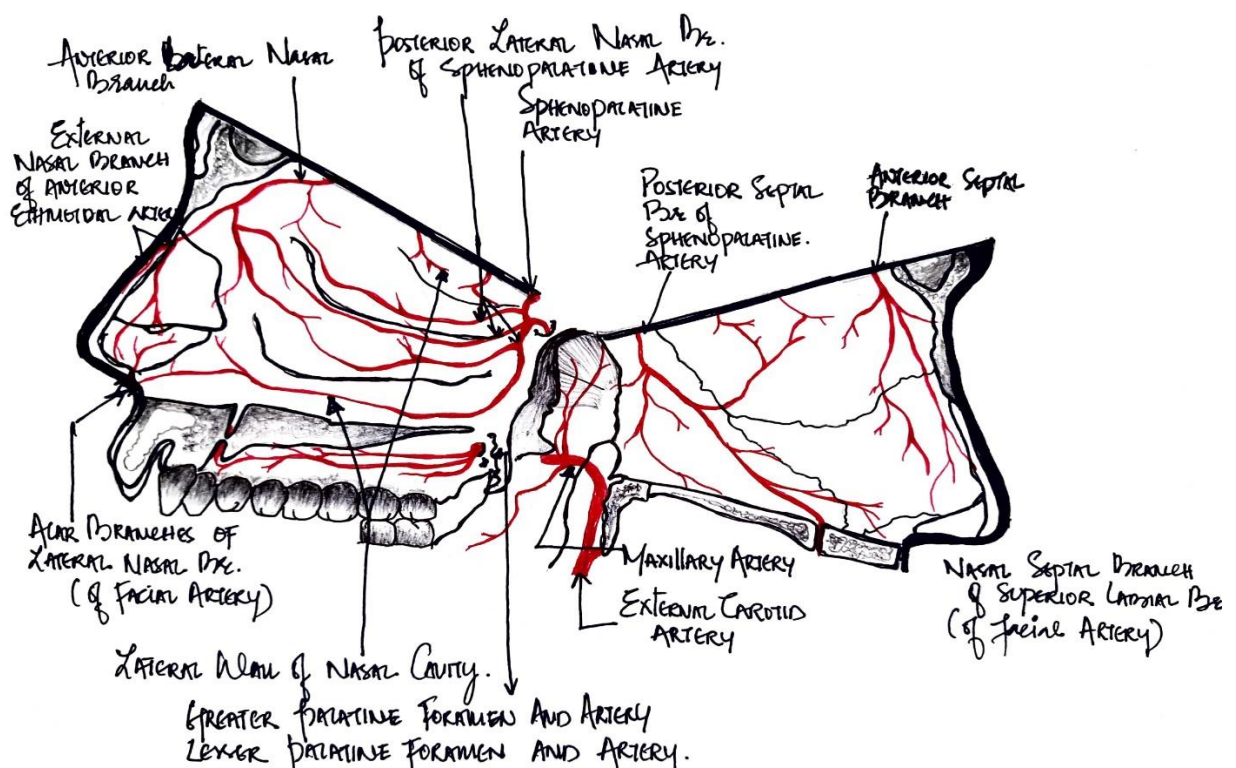 ANTERIOR LATERAL NASAL
BRANCH
POSTERIOR LATERAL NASAL BR.
of SPHENOPALATINE ARTERY
SPHENOPALATINE
ARTERY
EXTERNAL
NASAL BRANCH
of ANTERIOR
ETHMOIDAL ARTERY
POSTERIOR SEPTAL
BR of
SPHENOPALATINE.
ARTERY
ANTERIOR SEPTAL
BRANCH
ALAR BRANCHES OF
LATERAL NASAL BR.
(of FACIAL ARTERY)
MAXILLARY ARTERY
EXTERNAL CAROTID
ARTERY
NASAL SEPTAL BRANCH
of SUPERIOR LABIAL BR
(of facial ARTERY)
LATERAL WALL of NASAL CAVITY.
GREATER PALATINE FORAMEN AND ARTERY
LESSER PALATINE FORAMEN AND ARTERY.